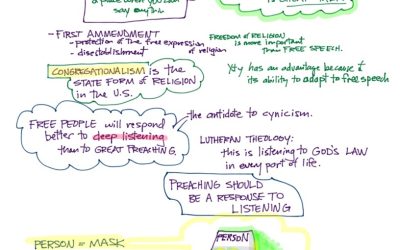 say anything
- FIRST AMMENDMENT
- protection of the free expression of religion
- disestablishment
FREEDOM of RELIGION
is more important
than FREE SPEECH.
CONGREGATIONALISM is the
STATE FORM of RELIGION
in the U.S.
Xty has an advantage because of
its ability to adapt to free speech
FREE PEOPLE will respond
better to deep listening
than to GREAT PREACHING.
the antidote to cynicism.
LUTHERAN THEOLOGY:
this is listening to GOD'S LAW
in every part of life.
PREACHING SHOULD
BE A RESPONSE TO
LISTENING
PERSON = MASK
PERSON